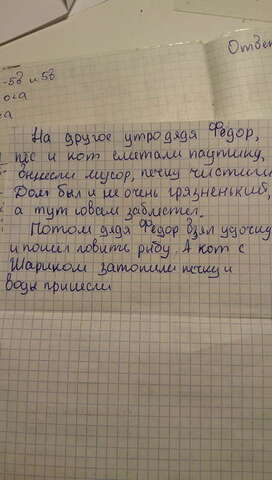 Ответ
-5в и 5в
ога
а
На другое утро дядя Федор,
пёс и кот сметали паутину,
выносили мусор, печку чистили.
Дом был и не очень грязненький,
а тут совсем заблестел.
Потом дядя Федор взял удочку
и пошел ловить рыбу. А кот с
Шариком затопили печку и
воды принесли